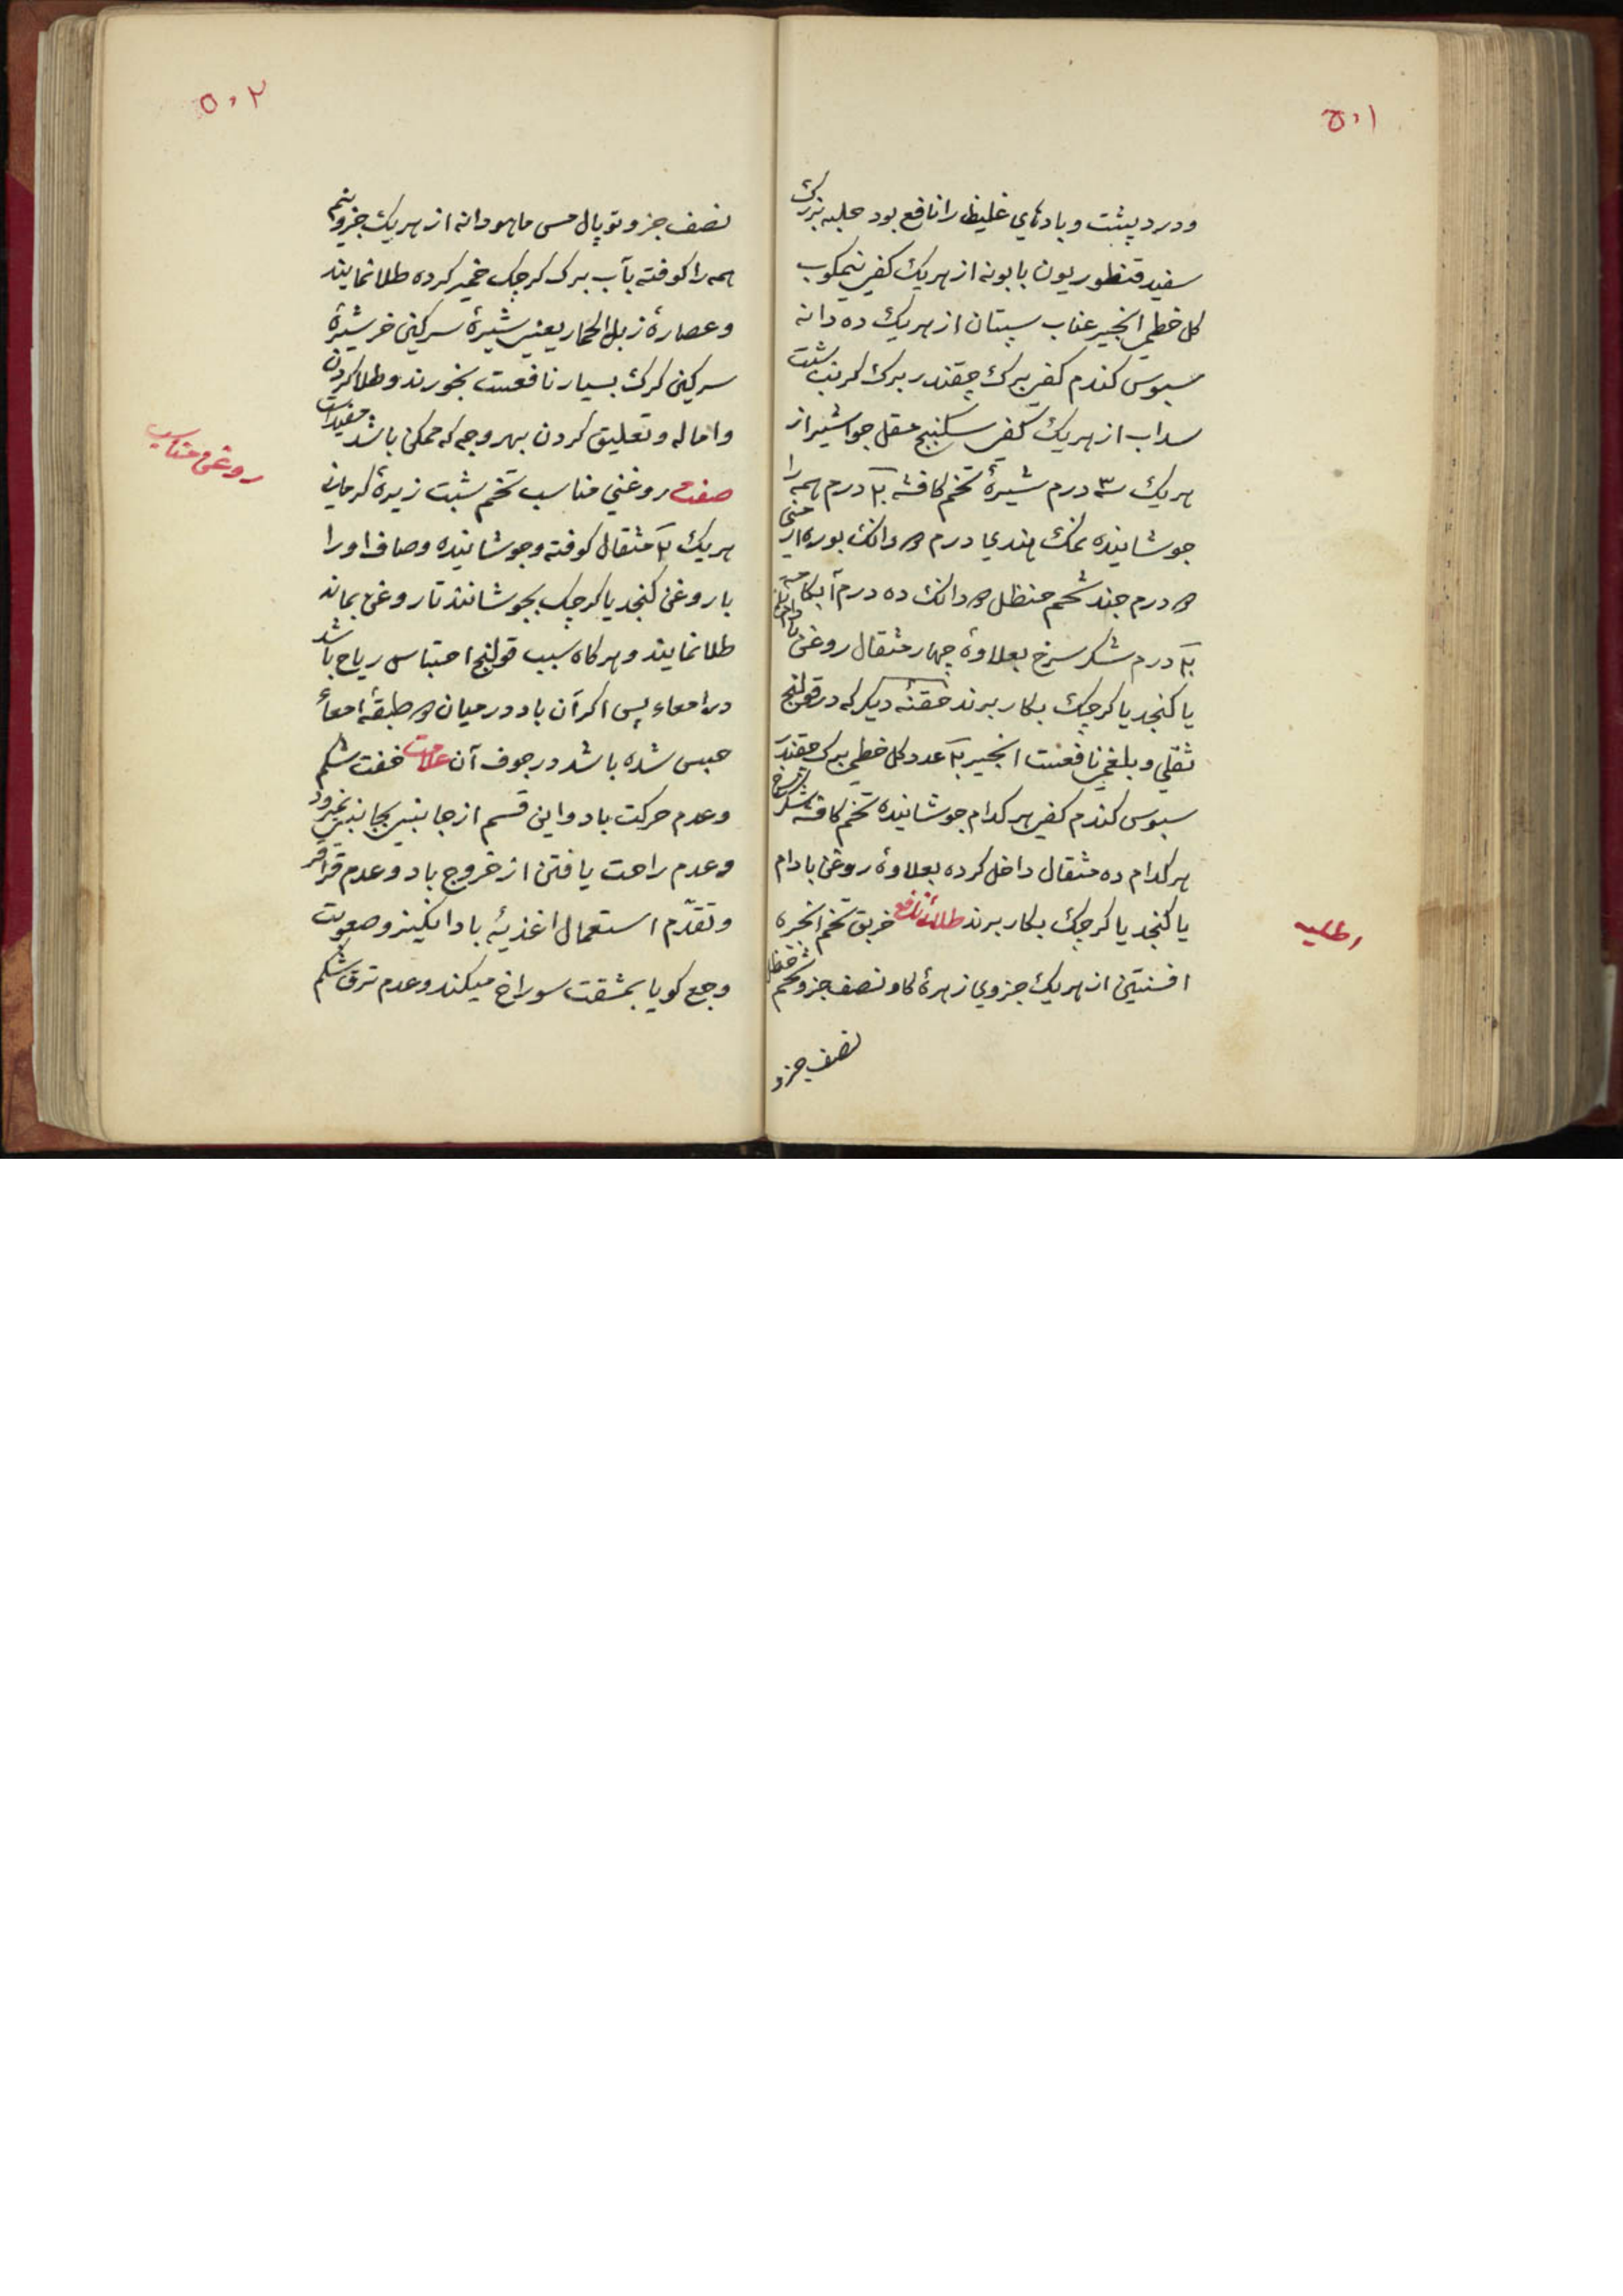 ۵۰۱
ودرد پشت وبادهاي غليظ را نافع بود حلبه بزرك
سفيد قنطوريون بابونه از هريك كفي نيمكوب
كل خطمي انجير عناب سپستان از هريك ده دانه
سبوس كندم كفي برك چقندر برك كرنب شبت
سداب از هريك كفي سكنبج مقل جواشير از
هريك ۳ درم شيرهٔ تخم كافشه ۲۰ درم همه را
جوشانيده نمك هندي درم دانك بوره ارمني
درم جند شحم حنظل دانك ده درم آبكامه
۲۰ درم شكر سرخ بعلاوهٔ چهار مثقال روغن بادام
يا كنجد يا كرچك بكار برند حقنهٔ ديكر كه در قولنج
ثفلي وبلغمي نافعست انجير ۲۰ عدد كل خطمي برك چقندر
سبوس كندم كفي هر كدام جوشانيده تخم كافشه شكر سرخ
هر كدام ده مثقال داخل كرده بعلاوهٔ روغن بادام
يا كنجد يا كرچك بكار برند طلاء نافع خربق تخم انجره
اطليه
افسنتين از هريك جزوي زهرهٔ كاو نصف جزو شحم حنظل
نصف جزو
۵۰۲
نصف جزو توپال مس ماهودانه از هريك جزو نيم
همه را كوفته بآب برك كرچك خمير كرده طلا نمايند
وعصارهٔ زبل الحمار يعني شيرهٔ سركين خر شيرهٔ
سركين كرك بسيار نافعست بخورند وطلا كردن
واماله وتعليق كردن بهر وجه كه ممكن باشد مفيد است
روغن مناسب
صفت روغني مناسب تخم شبت زيرهٔ كرماني
هريك ۲۰ مثقال كوفته وجوشانيده وصاف او را
با روغن كنجد يا كرچك بجوشانند تا روغن بماند
طلا نمايند وهركاه سبب قولنج احتباس رياح باشد
در امعاء پس اكر آن باد در ميان طبقهٔ امعاء
حبس شده باشد در جوف آن علامت خفت شكم
وعدم حركت باد واين قسم از جانبي بجانبي نميرود
وعدم راحت يافتن از خروج باد وعدم قراقر
وتقدّم استعمال اغذيهٔ باد انكيز وصعوبت
وجع كويا بمشقت سوراخ ميكند وعدم ترق شكم